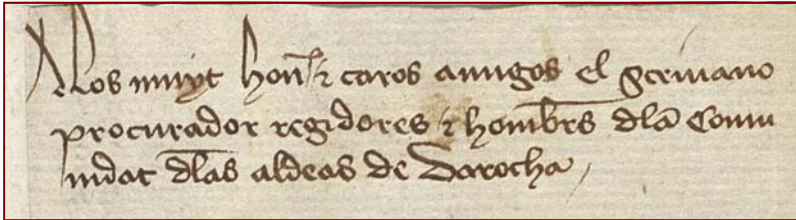 Alos muyt hon̄. ⁊ caros amigos el scriuano
procurador regidores ⁊ hombr̄s dl̄a Comu
nidat dl̄as aldeas de Darocha /